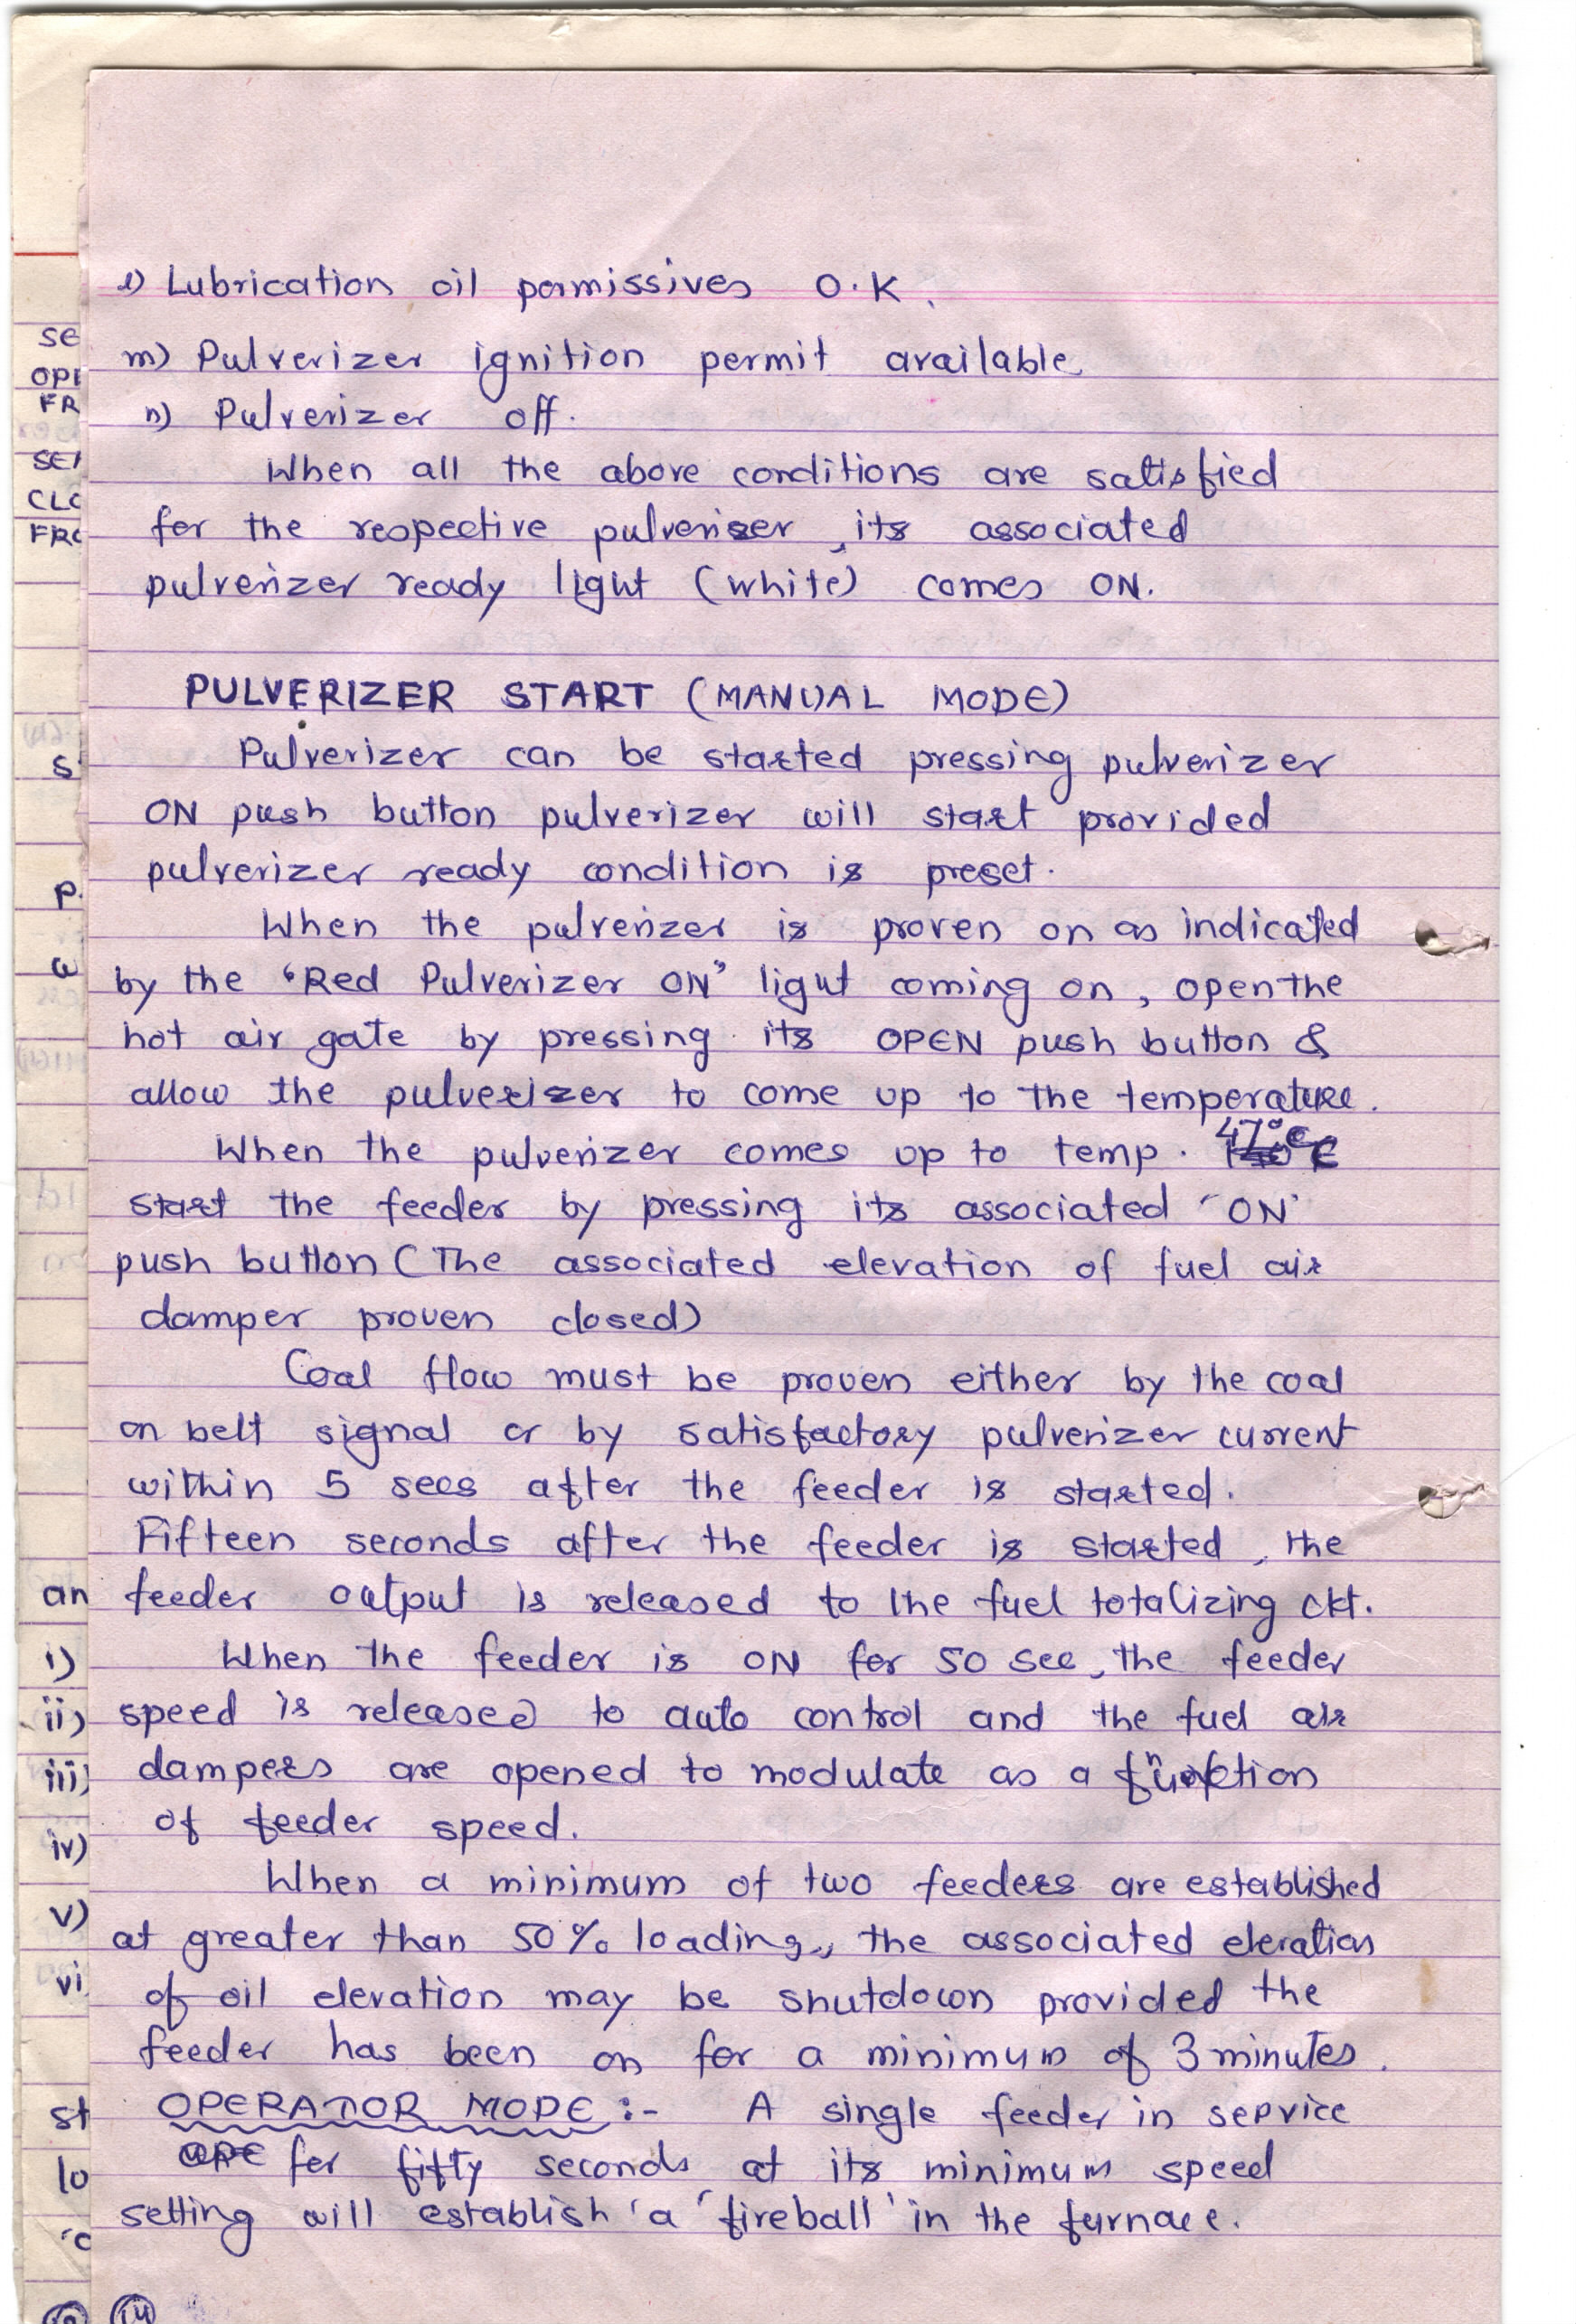 l) Lubrication oil permissives O.K.
m) Pulverizer ignition permit available
n) Pulverizer off.
When all the above conditions are satisfied
for the respective pulveriser, its associated
pulverizer ready light (white) comes ON.
PULVERIZER START (MANUAL MODE)
Pulverizer can be started pressing pulverizer
ON push button pulverizer will start provided
pulverizer ready condition is preset.
When the pulverizer is proven on as indicated
by the 'Red Pulverizer ON' light coming on, open the
hot air gate by pressing its OPEN push button &
allow the pulverizer to come up to the temperature.
When the pulverizer comes up to temp. 47°C
start the feeder by pressing its associated 'ON'
push button (The associated elevation of fuel air
damper proven closed)
Coal flow must be proven either by the coal
on belt signal or by satisfactory pulverizer current
within 5 secs after the feeder is started.
Fifteen seconds after the feeder is started, the
feeder output is released to the fuel totalizing ckt.
When the feeder is ON for 50 sec, the feeder
speed is released to auto control and the fuel air
dampers are opened to modulate as a function
of feeder speed.
When a minimum of two feeders are established
at greater than 50% loading, the associated elevation
of oil elevation may be shutdown provided the
feeder has been on for a minimum of 3 minutes.
OPERATOR MODE :- A single feeder in service
for fifty seconds at its minimum speed
setting will establish 'a 'fireball' in the furnace.
14
SE
OPE
FR
SEN
CLO
FRO
S
P.
an
i)
ii)
iii)
iv)
v)
vi
st
lo